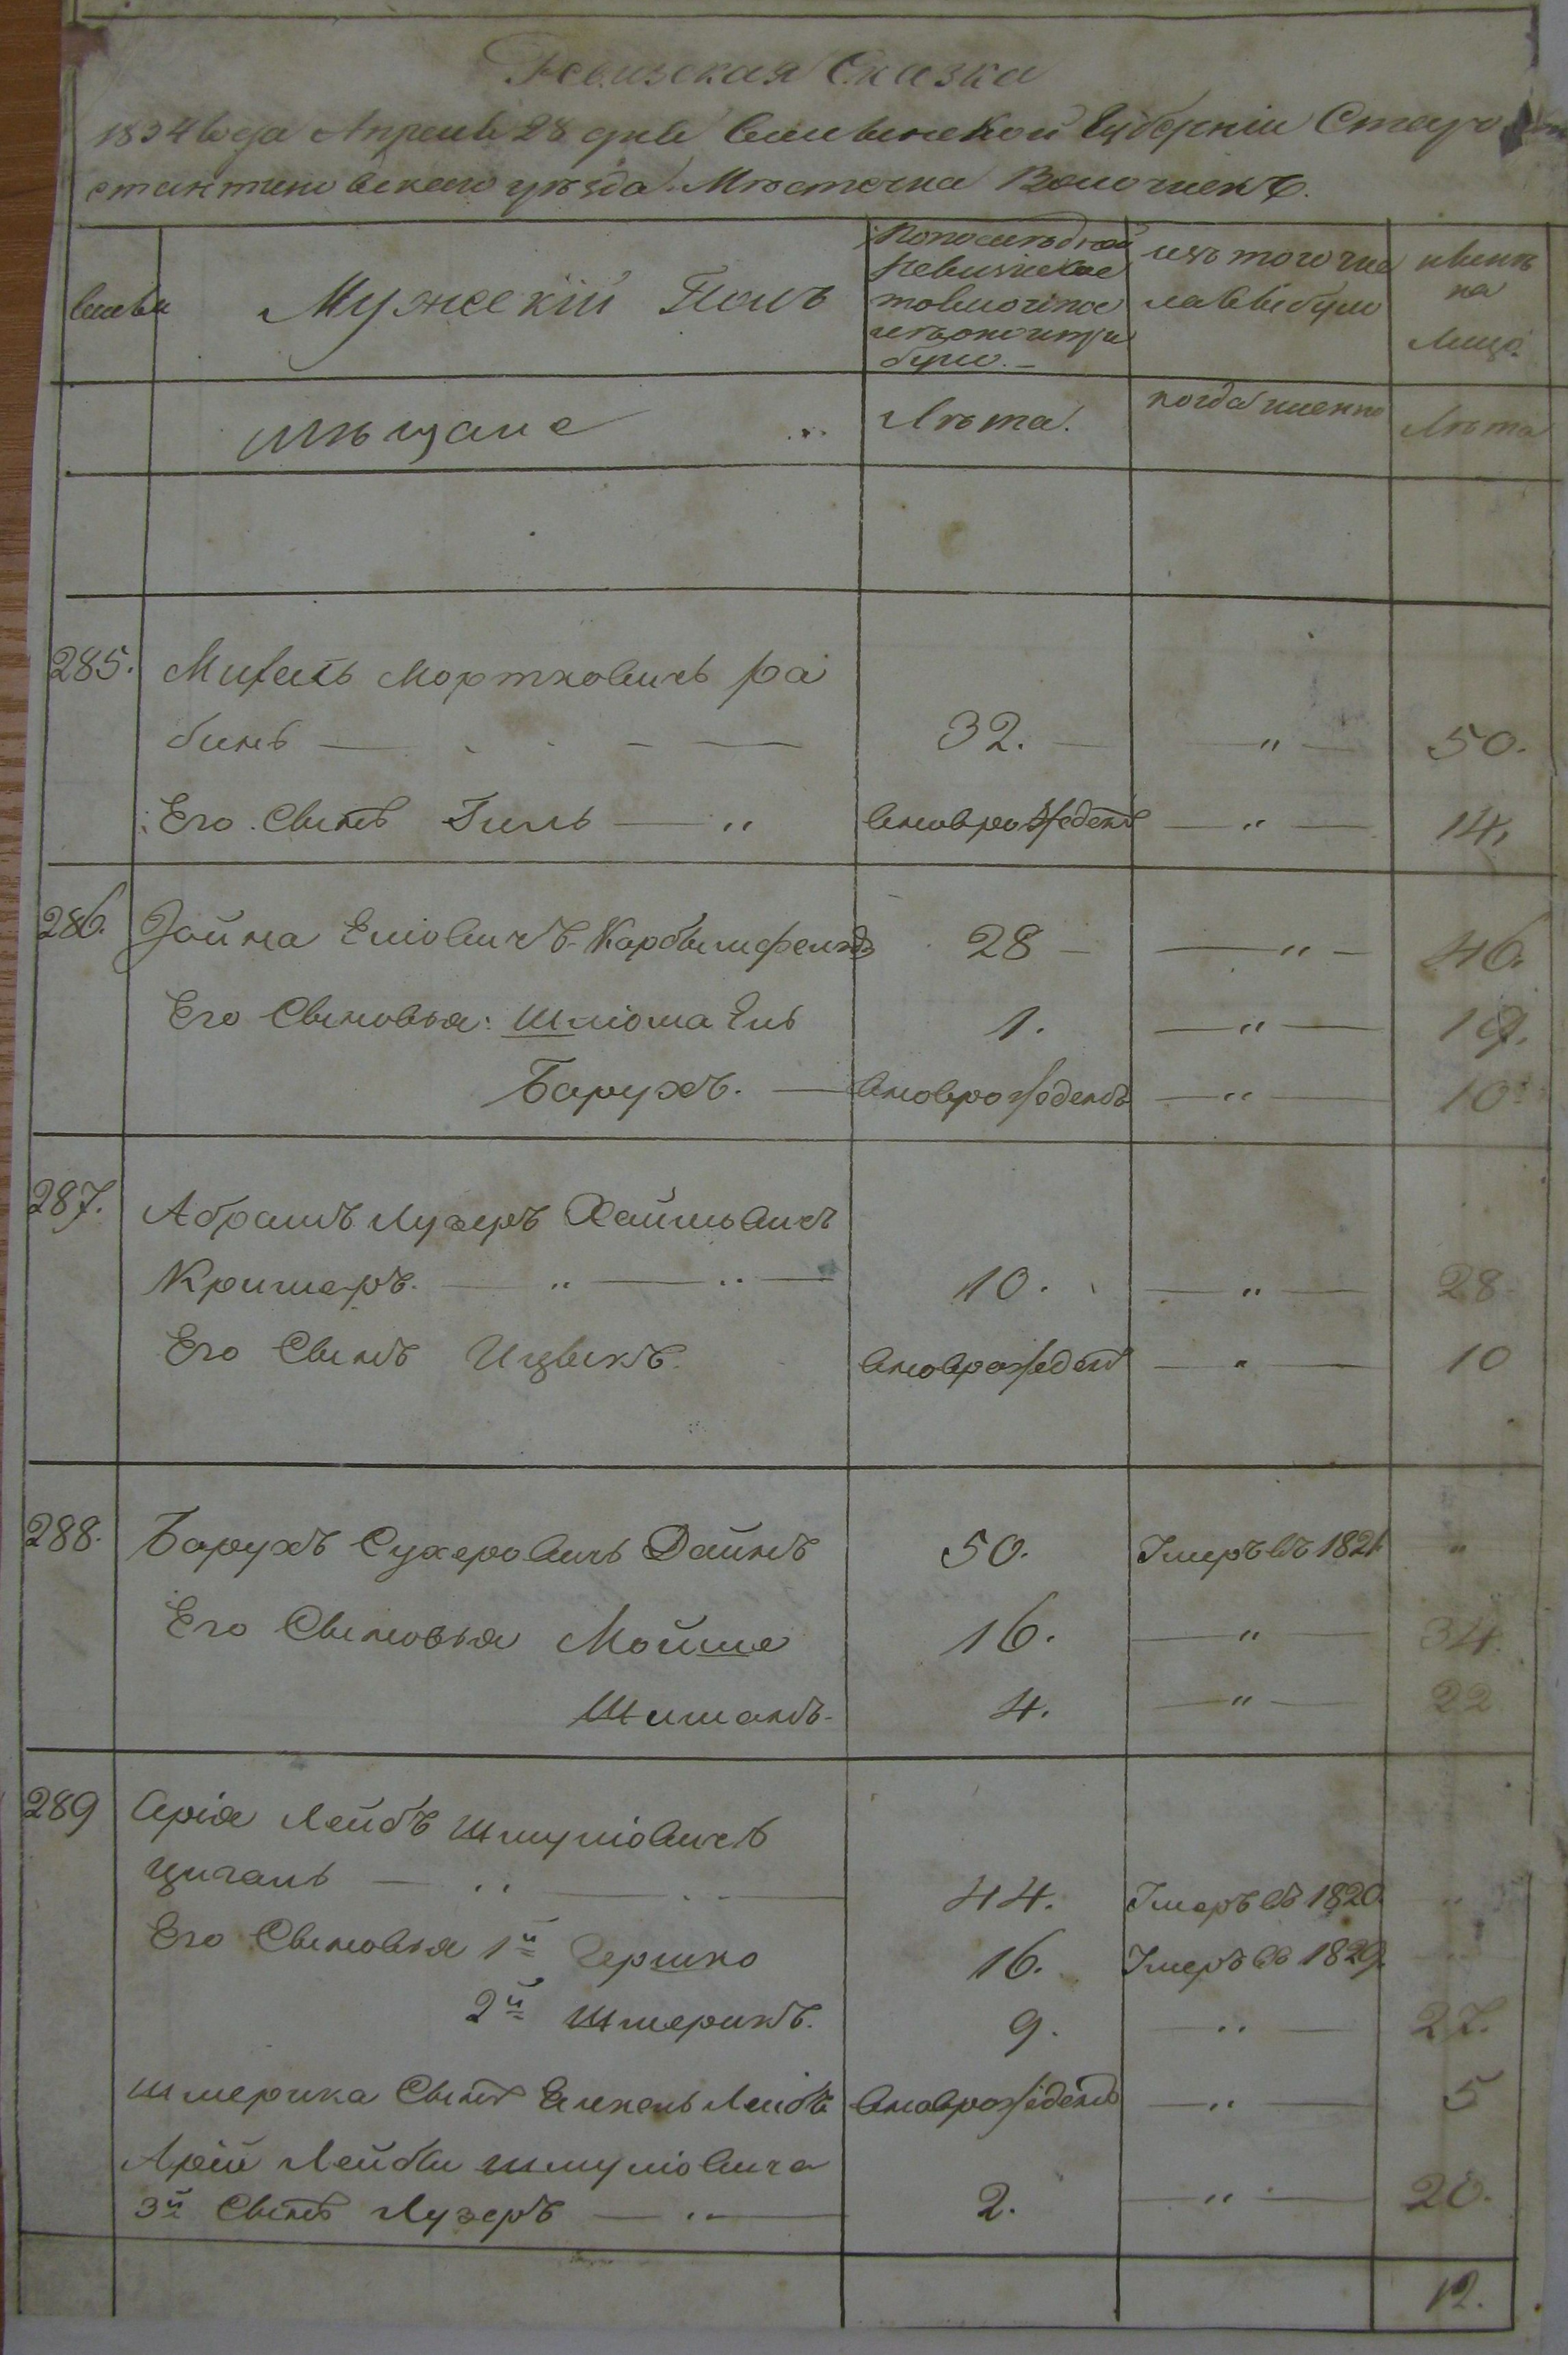 Ревизская Сказка
1834 года Апреля 28 дня Волынской Губернiи Старокон
стантиновскаго уѣзда Мѣстечка Волочискъ.
Семьи
Мужескiй Полъ
По последней ревизiи состояло и после оной прибыло.
изъ того числа выбыло
нынѣ на лицо.
мѣщане
Лѣта.
когда именно
Лѣта
285. Михель Мортковичъ Ра
бинъ 32. — " — 50.
Его Сынъ Гиль — " вновърожденъ — " — 14.
286. Зойна Елiовичъ Карбышфелдъ 28 — " — 46.
Его Сыновья: Шлiома Ель 1. — " — 19.
Барухъ. — вновърожденъ — " — 10.
287. Абрамъ Лузеръ Хаймовичъ
Кримеръ. — " — " — 10. — " — 28
Его Сынъ Ицыкъ. вновърожденъ — " — 10
288. Барухъ Сухеровичъ Дайнъ 50. Умеръ въ 1821. "
Его Сыновья Мойше 16. — " — 34.
Шиманъ. 4. — " — 22
289 Арiя Лейбъ Шмулiовичъ
Циганъ — " — " — 44. Умеръ въ 1820. "
Его Сыновья 1й Гершко 16. Умеръ въ 1829.
2й Шмерикъ. 9. — " — 27.
Шмерика Сынъ Лейбъ вновърожденъ — " — 5
Арiй Лейбы Шмулiовича
3й Сынъ Лузеръ — " — 2. — " — 20.
12.